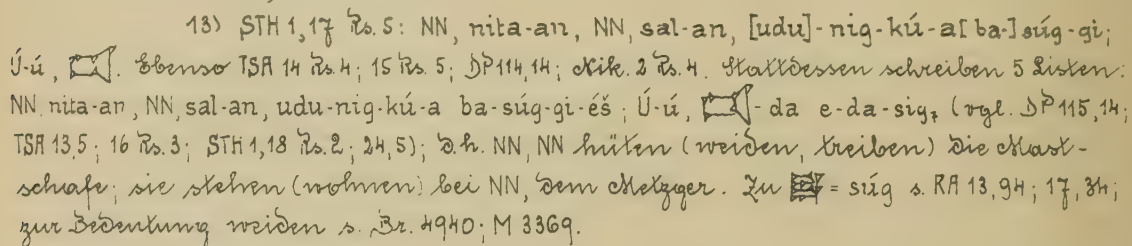 13) STH 1,17 Rs. 5: NN, nita-an, NN, sal-an, [udu]-nig-kú-a[ba-]súg-gi;
Ú-ú, . Ebenso TSA 14 Rs. 4; 15 Rs. 5; DP 114,14; Nik. 2 Rs. 4. Stattdessen schreiben 5 Listen:
NN, nita-an, NN, sal-an, udu-nig-kú-a ba-súg-gi-éš; Ú-ú, -da e-da-sig₇ (vgl. DP 115,14;
TSA 13,5; 16 Rs. 3; STH 1,18 Rs. 2; 24,5); d.h. NN, NN hüten (weiden, treiben) die Mast-
schafe; sie stehen (wohnen) bei NN, dem Metzger. Zu = súg s. RA 13,94; 17,34;
zur Bedeutung weiden s. Br. 4940; M 3369.